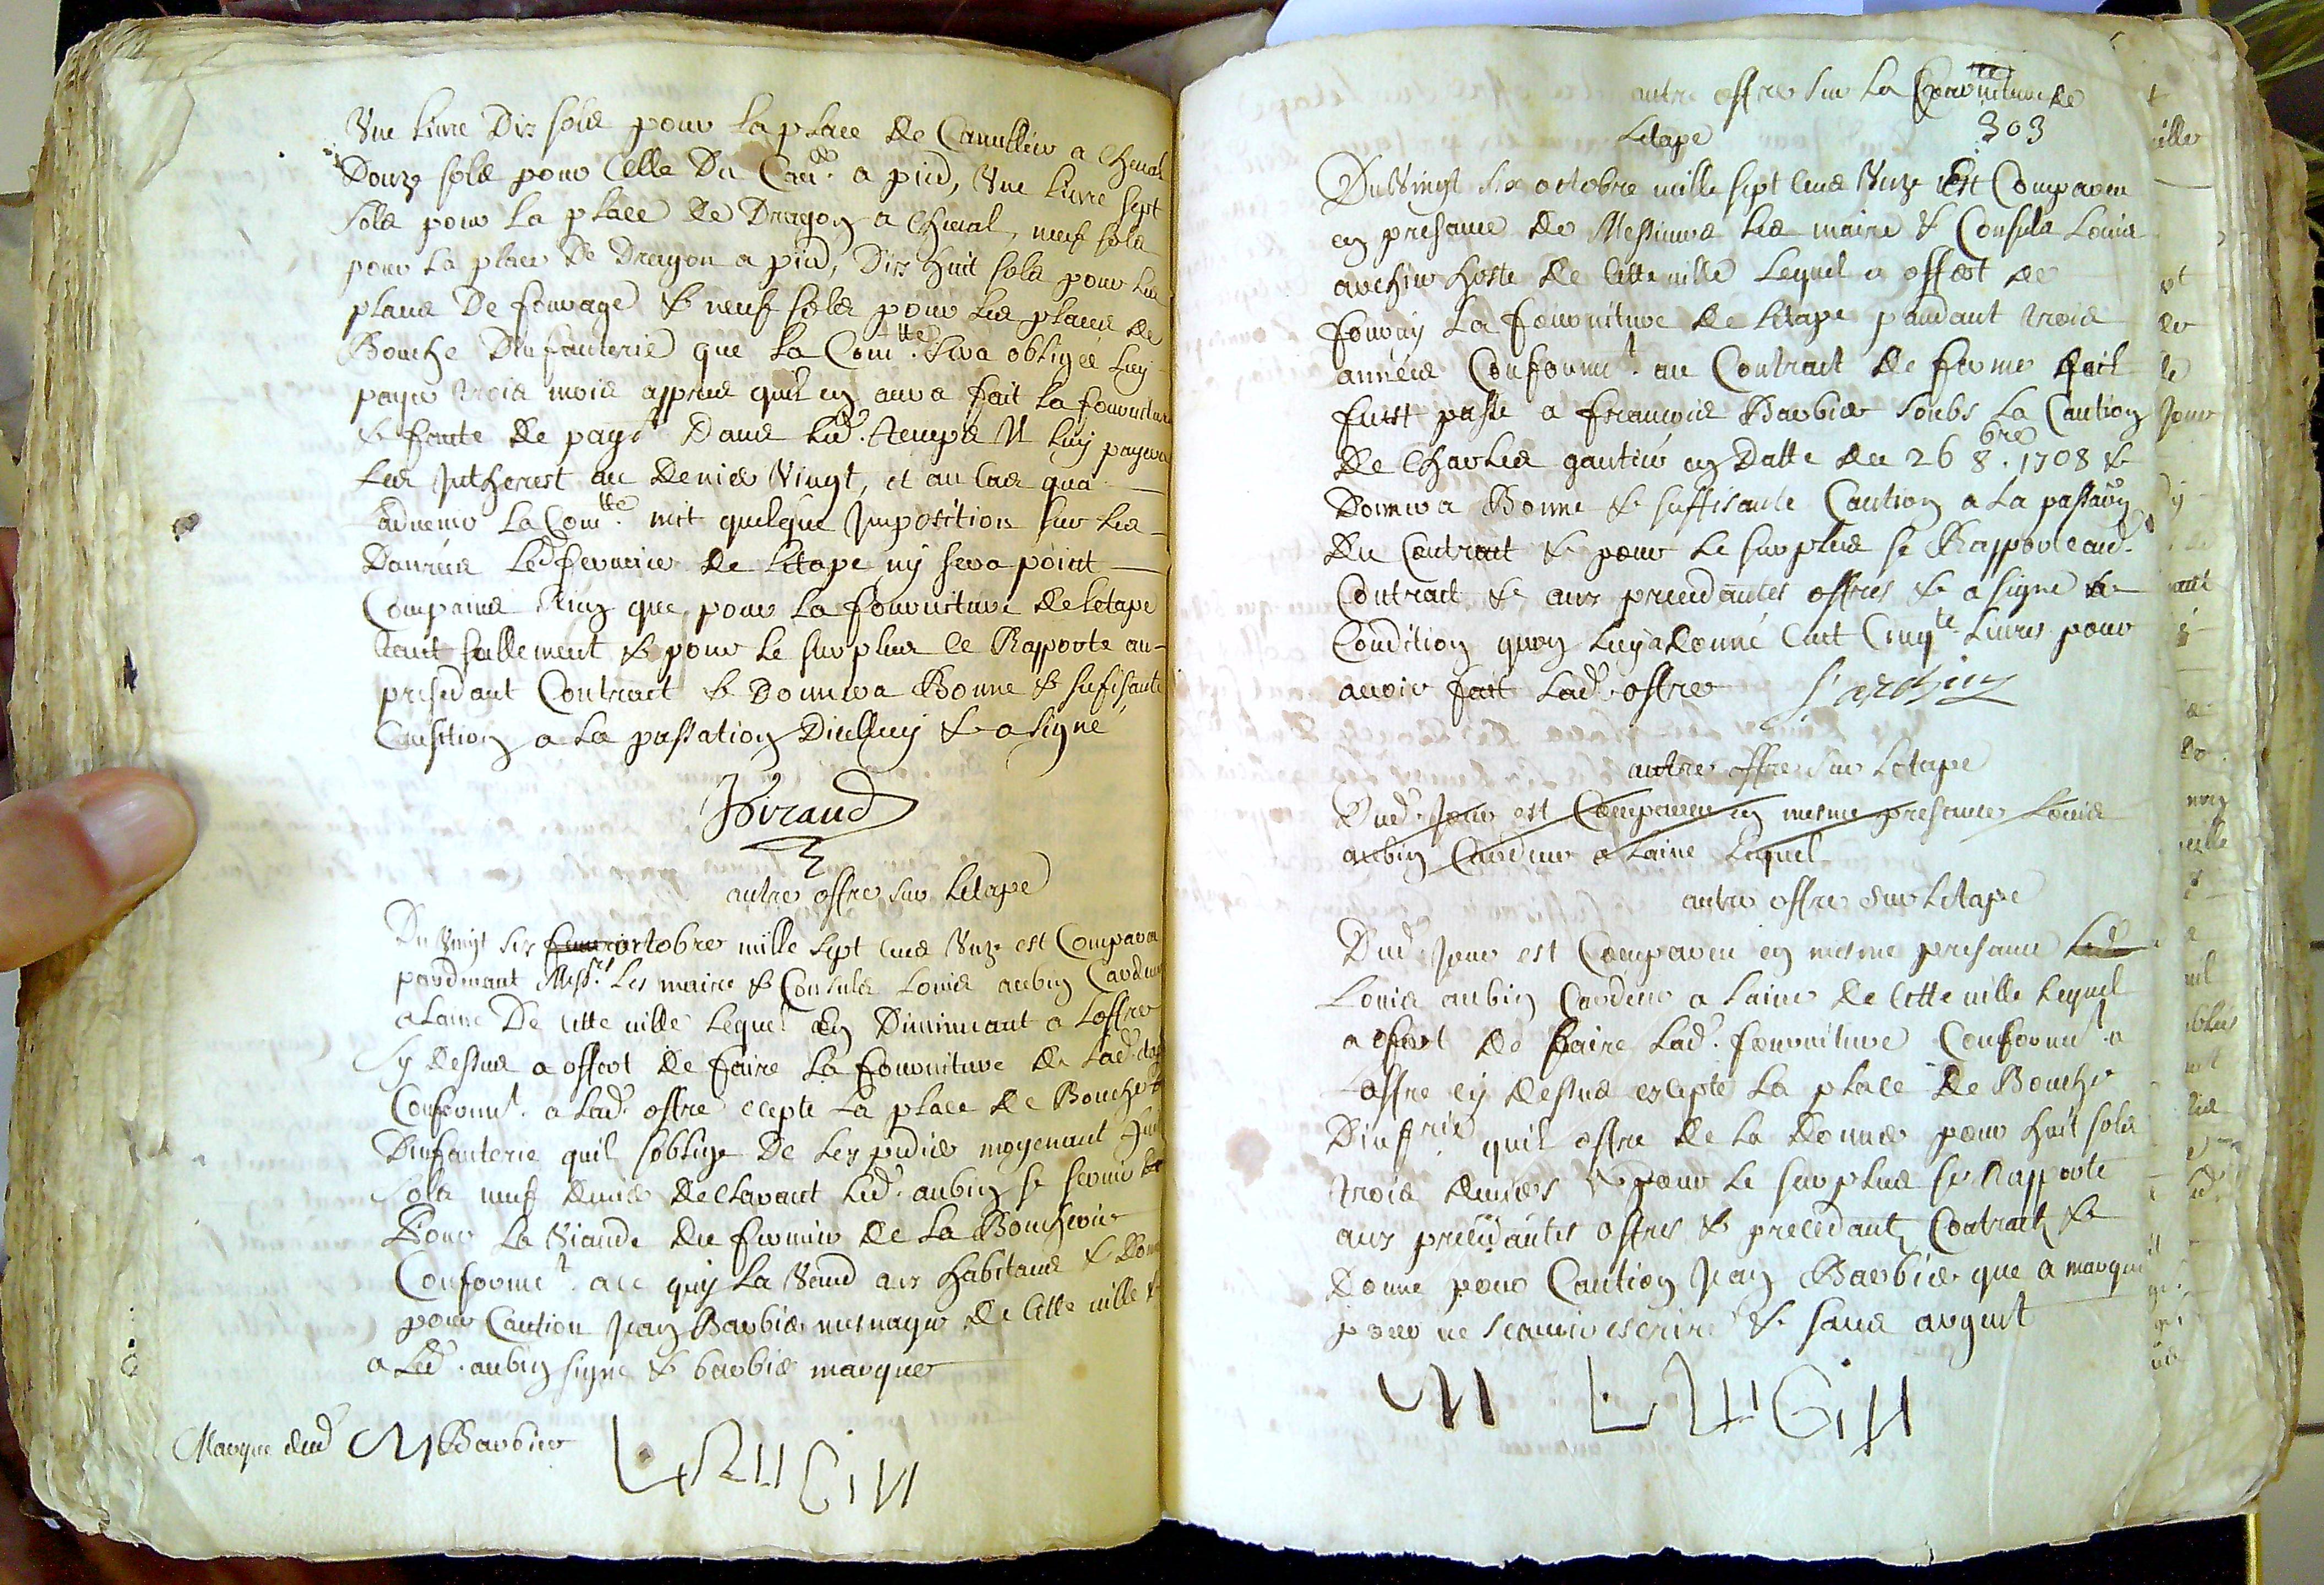 Une livre Dix sols pour la place de Cavallier a Cheval
Douze sols pour Celle Du Cav.er a pied, Une livre sept
sols pour la place de Dragon a Cheval, neuf sols
pour la place De Dragon a pied, Dix huit sols pour les
places De fourage & neuf sols pour les places de
Bouche Dinfanterie que la Com.tte sera obligée luy
payer trois mois appres quil en aura fait la fourniture
& faute de pay.t Dans led. temps Il luy payera
les Intherest au Denier Vingt, et au Cas qua
ladvenir la Com.tte mit quelque Imposition sur les
Danrées Led fermier de letape ny sera point
Compains Rien que pour la fourniture de letape
tant sullement & pour le surplus ce Rapporte au
presedant Contract & Donnera Bonne & sufisante
Caustion a la passation Dicelluy & a signé
JGiraud
autre offre sur Letape
Du Vingt six octobre mille sept Cens Unze est Compareu
pardevant Mess.rs Les maire & Consuls Louis aubin Cardeur
a Laine De Cette ville Lequel En Diminuant a Loffre
sy dessus a offert de faire la fourniture de Lad. etape
Conformt. a lad. offre ecepte la place de Bouche
Dinfanterie quil soblige De les pudier moyenant huit
sols neuf deniers declarant led. aubin se servir
Pour la Viande du fermier de la Boucherie
Conforme.t a ce quy la Vend aux habitans & Donne
pour Caution Jean Barbier mesnager de Cette ville &
a Led. aubin signe & barbier marque
Marque dud M Barbier
L AUBIN
autre offre sur la fourniture de
Letape
303
Du Vingt six octobre mille sept Cens Unze Est Compareu
en presance de Messieurs les maire & Consuls Louis
archier hoste de Cette ville Lequel a offert de
fourny la fourniture de Letape pandant trois
années Conformt. au Contract de ferme quil
fust passe a francois Barbier soubs la Caution
de Charles gautier en Datte du 26 8.bre 1708 &
Donnera Bonne & suffisante Caution a la passaon
du Contrat & pour le surplus se Rapporte aud.
Contract & aux precedantes offres & a signe &
Condition quon luy a donné Cent Cinq.te Livres pour
avoir fait lad. offre L archier
autre offre sur Letape
Dud. Jour est Compareu en mesme presance Louis
aubin Cardeur a Laine Lequel
autre offre sur Letape
Dud. Jour est Compareu en mesme presance Led
Louis aubin Cardeur a laine de Cette ville lequel
a ofert de faire Lad. fourniture Conformt. a
Loffre cy dessus excepte la place de Bouche
Dinf.rie quil offre de la donner pour huit sols
trois deniers & pour le surplus se Rapporte
aux precedantes offres & precedant Contract &
donne pour Caution Jean Barbier que a marque
pour ne scavoir escrire & sans argent
M L AUBIN